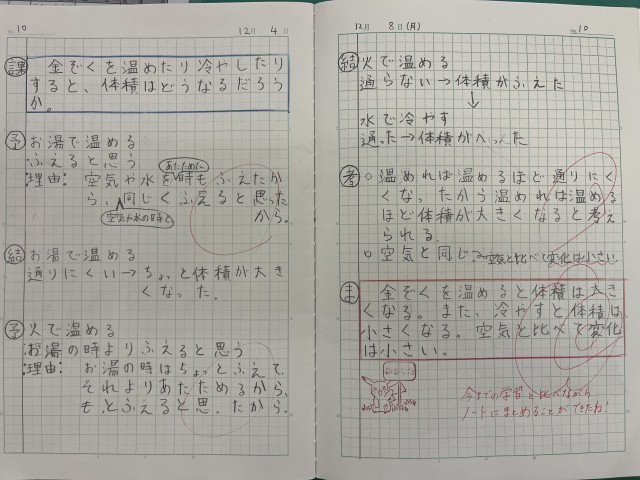 No.10
12月 4日
課 金ぞくを温めたり冷やしたり
すると、体積はどうなるだろう
か。
予 お湯で温める
ふえると思う
あたためた
理由: 空気や水を時もふえたか
ら、同じくふえると思った
空気や水の時と
から。
結 お湯で温める
通りにくい→ちょっと体積が大き
くなった。
予 火で温める
お湯の時よりふえると思う
理由: お湯の時はちょっとふえて、
それよりあたためるから、
もっとふえると思ったから。
12月 8日(月)
No.10
結 火で温める
通らない→体積がふえた
↓
水で冷やす
通った→体積がへった
考 ○温めれば温めるほど通りにく
くなったから温めれば温める
ほど体積が大きくなると考え
られる。
○空気と同じ
空気と比べて変化は小さい
ま 金ぞくを温めると体積は大き
くなる。また、冷やすと体積は
小さくなる。空気と比べて変化
は小さい。
今までの学習と比べながら
ノートにまとめることができたね!